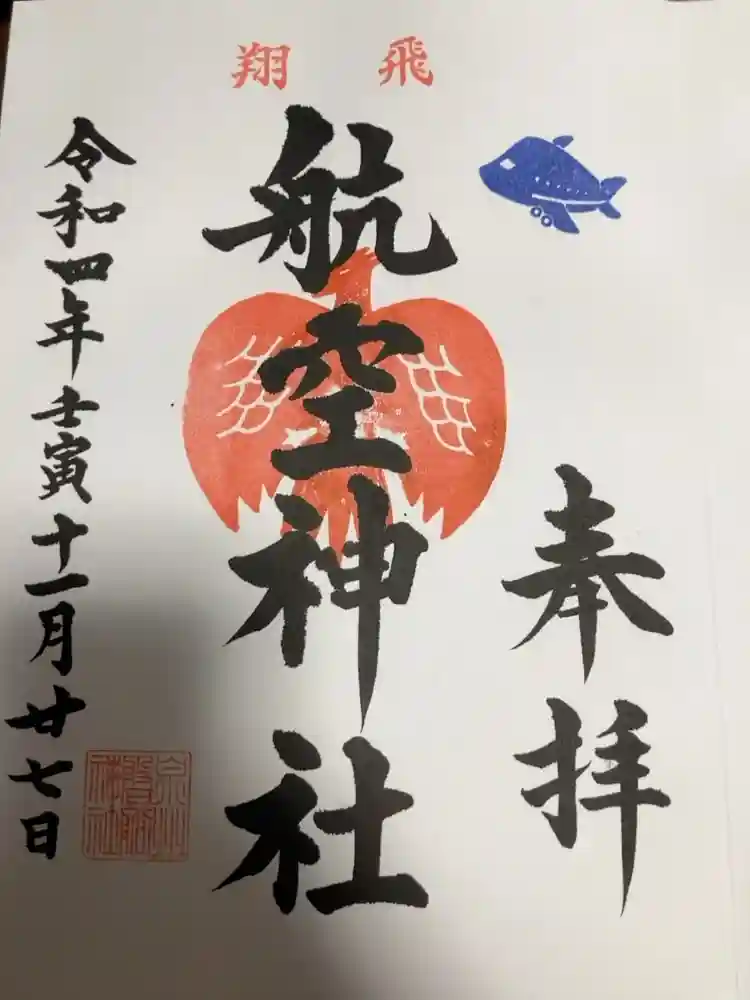 飛翔
奉拝
航空神社
令和四年壬寅十一月廿七日